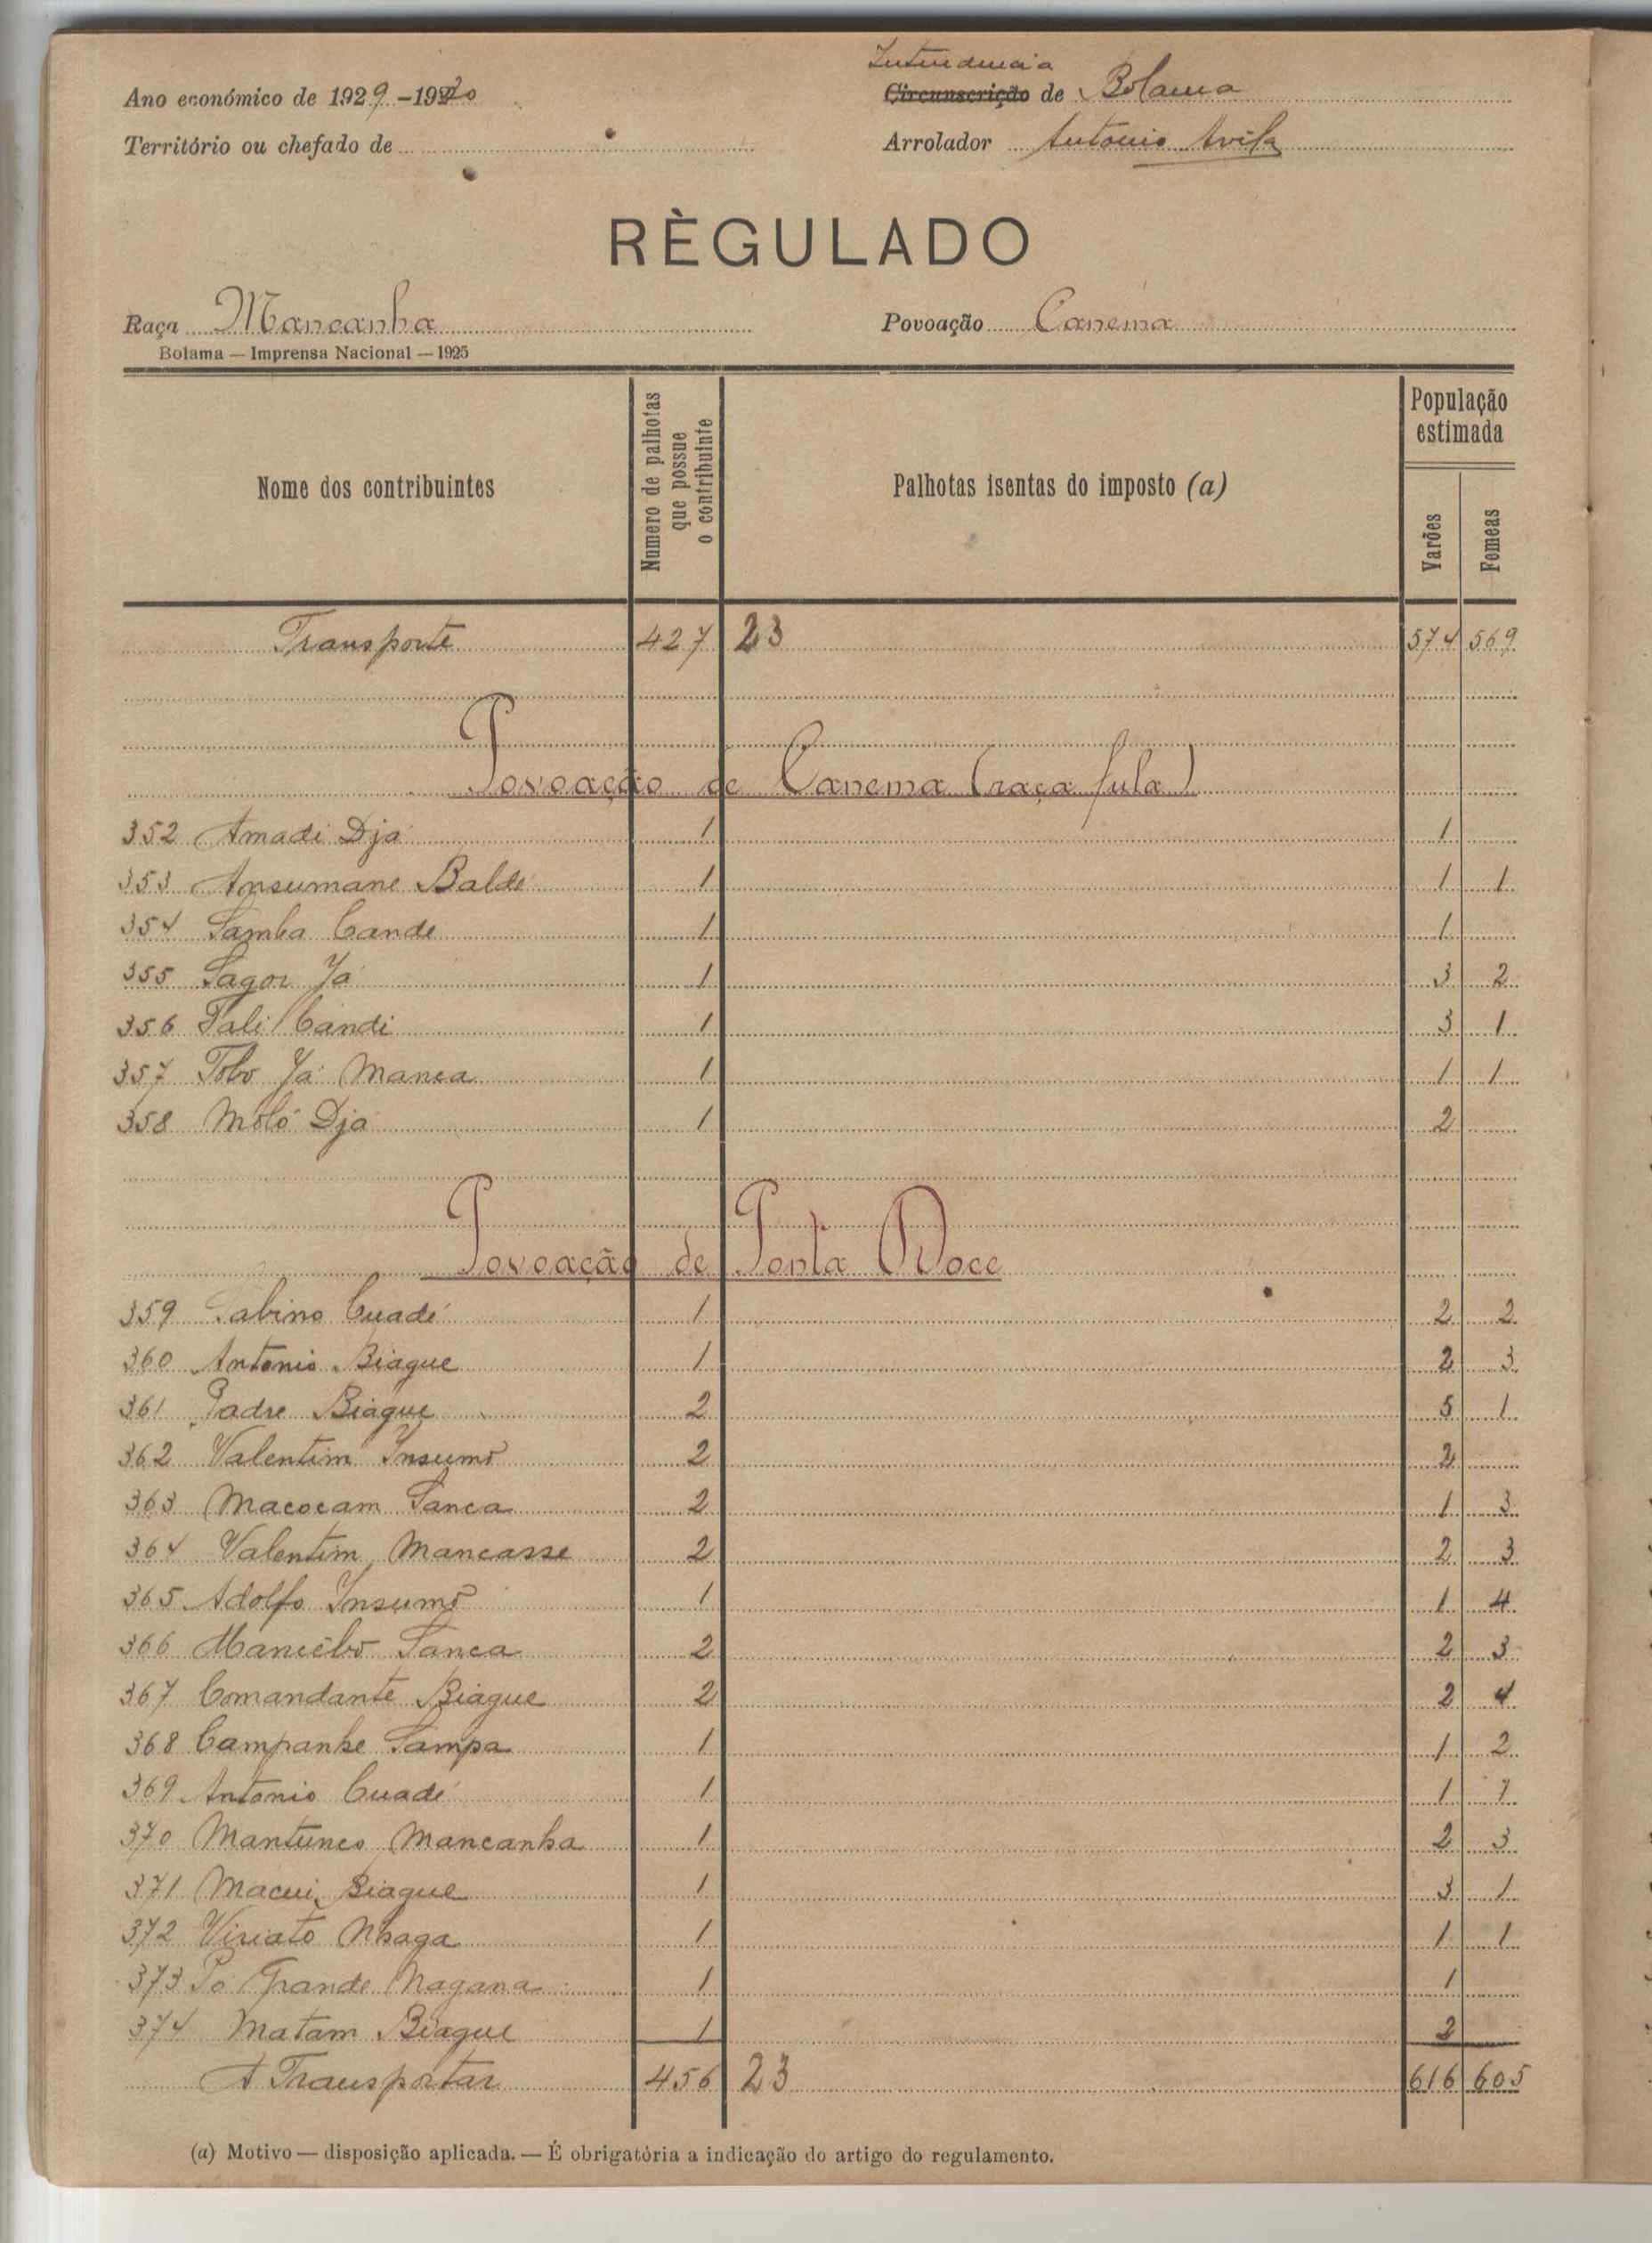 Intendencia
Ano económico de 1929-1930
Circunscrição de Bolama
Território ou chefado de
Arrolador Antonio Avila
RÈGULADO
Raça Mancanha
Povoação Canema
Bolama — Imprensa Nacional — 1925
Nome dos contribuintes
Numero de palhotas que possue o contribuinte
Palhotas isentas do imposto (a)
População estimada
Varões
Femeas
Transporte 427 23 574 569
Povoação de Canema (raça fula)
352 Amadi Djá 1 1
353 Ansumane Baldé 1 1 1
354 Samba Cande 1 1
355 Sagor Já 1 3 2
356 Sali Candi 1 3 1
357 Tobo Já Manca 1 1 1
358 Moló Djá 1 2
Povoação de Ponta Doce
359 Sabino Cuadé 1 2 2
360 Antonio Biague 1 2 3
361 Padre Biague 2 5 1
362 Valentim Insumó 2 2
363 Macocam Sanca 2 1 3
364 Valentim Mancasse 2 2 3
365 Adolfo Insumó 1 1 4
366 Mancêbo Sanca 2 2 3
367 Comandante Biague 2 2 4
368 Campanhe Sampa 1 1 2
369 Antonio Cuadé 1 1 1
370 Mantunco Mancanha 1 2 3
371 Macui Biague 1 3 1
372 Viriato Nhaga 1 1 1
373 Pó Grande Nagana 1 1
374 Matam Biague 1 2
A Transportar 456 23 616 605
(a) Motivo — disposição aplicada. — É obrigatória a indicação do artigo do regulamento.